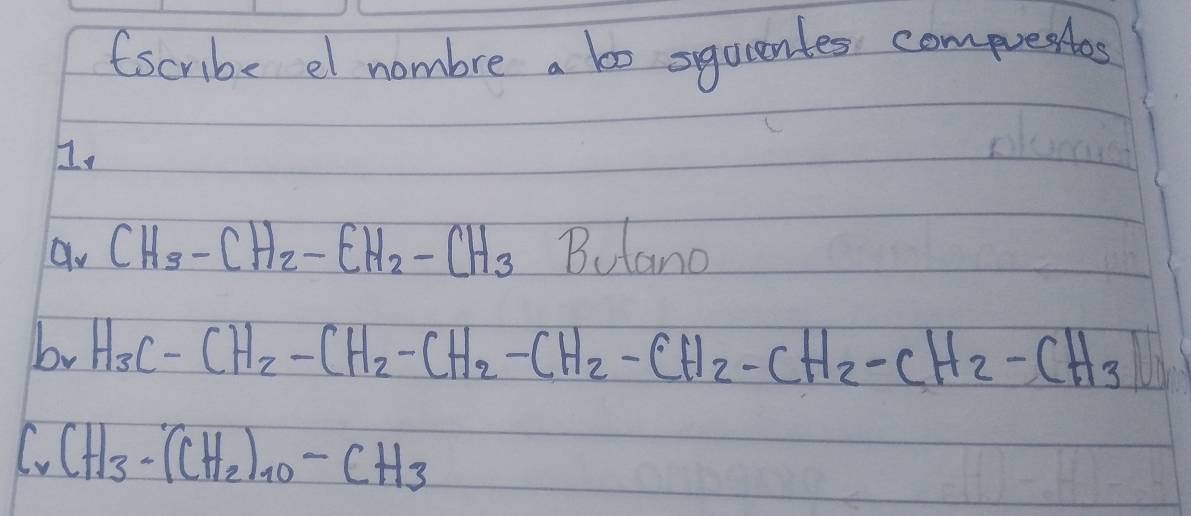 Escribe el nombre a los siguientes compuestos
1.
a. CH₃-CH₂-CH₂-CH₃ Butano
b. H₃C-CH₂-CH₂-CH₂-CH₂-CH₂-CH₂-CH₂-CH₃
C. CH₃-(CH₂)₁₀-CH₃